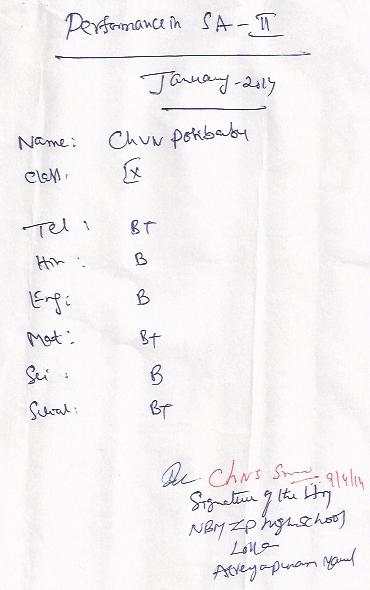 Performance in SA - II
January - 2014
Name: Ch V N Potibabu
Class: IX
Tel: B+
Hin: B
Eng: B
Mat: B+
Sci: B
Social: B+
Ch N S 9/4/14
Signature of the HM
NBM ZP High School
Lolla
Atreyapuram Mandal